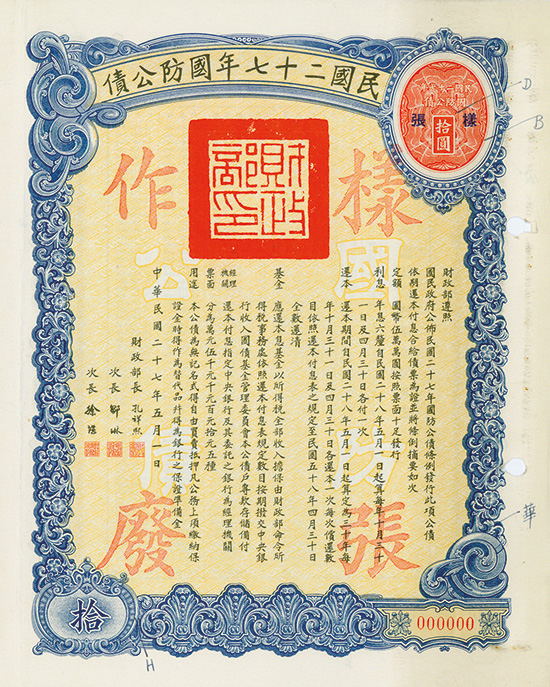 民國二十七年國防公債
民國二十七年
國防公債
樣張
拾圓
財政部印
樣張
作廢
國防
公債
財政部遵照
國民政府公佈民國二十七年國防公債條例發行此項公債
依期還本付息合給債票為證並將條例摘要如次
定額 國幣伍萬萬圓按照票面十足發行
利息 年息六釐自民國二十八年五月一日起算每年十月三十
一日及四月三十日各付一次
還本 還本期間自民國二十八年五月一日起算定為三十年每
年十月三十一日及四月三十日各還本一次每次償還數
目依照還本付息表之規定至民國五十八年四月三十日
全數還清
基金 應還本息基金以所得稅全部收入擔保由財政部命令所
得稅事務處依照還本付息表規定數目按期撥交中央銀
行收入國債基金管理委員會本公債戶專款存儲備付
經理機關 還本付息指定中央銀行及其委託之銀行為經理機關
票面 分為萬元伍千元千元百元拾元五種
用途 本公債為無記名式得自由買賣抵押凡公務上須繳納保
證金時得作為替代品并得為銀行之保證準備金
中華民國二十七年五月一日
財政部長 孔祥熙
次長 鄒琳
次長 徐堪
拾
000000
D
B
華
H